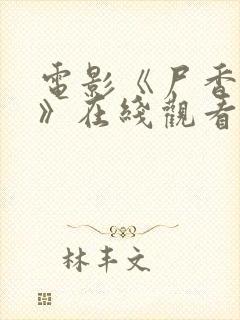 電影《尸香
》在綫觀看
林丰文